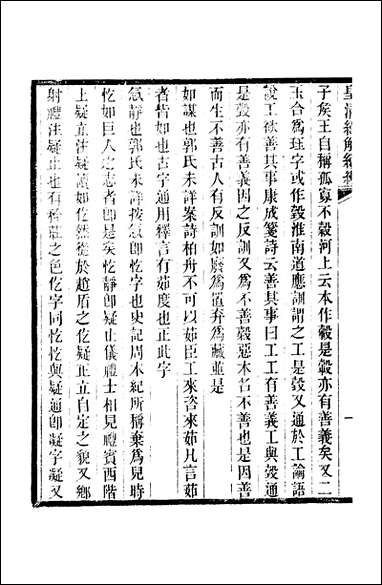 皇清經解續編
子矣王自稱孤寡不穀河上云本作轂是轂亦有善義矣又二
玉合爲珏字或作瑴淮南道應訓謂之工是瑴又通於工論語
說工欲善其事康成箋詩云善其事曰工工有善義工與瑴通
是瑴亦有善義因之反訓又爲不善穀惡木名不善也是因善
而生不善古人有反訓如廢爲置弃爲藏並是
如謀也郭氏未詳案詩柏舟不可以茹臣工來咨來茹凡言茹
者皆如也古字通用釋言有茹度也正此字
忥靜也郭氏未詳按忥卽忔字也史記周本紀所稱棄爲兒時
忔如巨人之志者卽是矣忔靜卽疑止儀禮士相見禮賓西階
上疑立注疑讀如仡然從於趙盾之仡疑正立自定之貌又鄉
射禮注疑止也有矜莊之色仡字同忔忔與疑通卽凝字凝又
一